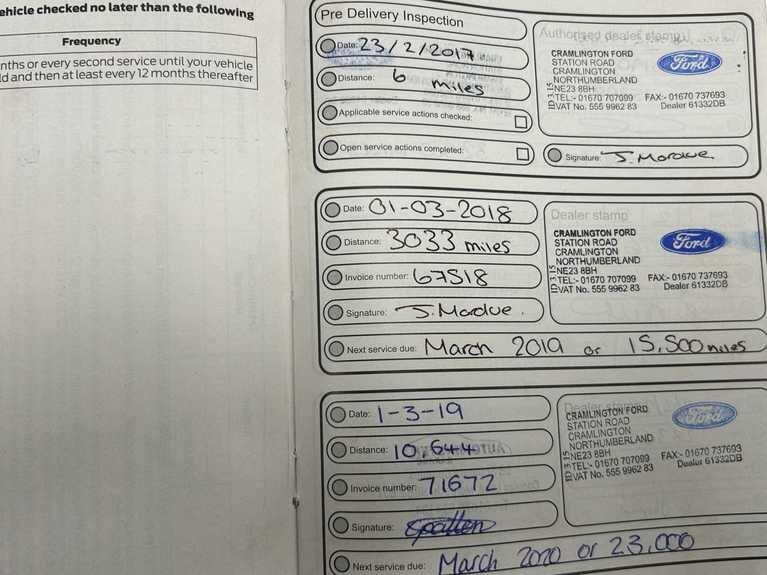 ehicle checked no later than the following
Frequency
nths or every second service until your vehicle
ld and then at least every 12 months thereafter
Pre Delivery Inspection
Date: 23/2/2017
Distance: 6 miles
Applicable service actions checked:
Open service actions completed:
Authorised dealer stamp
CRAMLINGTON FORD
STATION ROAD
CRAMLINGTON
NORTHUMBERLAND
NE23 8BH
TEL:- 01670 707099 FAX:- 01670 737693
VAT No. 555 9962 83 Dealer 61332DB
ID 3 15
Ford
Signature: J. Mordue.
Date: 01-03-2018
Distance: 3033 miles
Invoice number: 67518
Signature: J. Mordue.
Next service due: March 2019 or 15,500 miles
Dealer stamp
CRAMLINGTON FORD
STATION ROAD
CRAMLINGTON
NORTHUMBERLAND
NE23 8BH
TEL:- 01670 707099 FAX:- 01670 737693
VAT No. 555 9962 83 Dealer 61332DB
ID 3 15
Ford
Date: 1-3-19
Distance: 10,644
Invoice number: 71672
Signature:
Next service due: March 2020 or 23,000
Dealer stamp
CRAMLINGTON FORD
STATION ROAD
CRAMLINGTON
NORTHUMBERLAND
NE23 8BH
TEL:- 01670 707099 FAX:- 01670 737693
VAT No. 555 9962 83 Dealer 61332DB
ID 3 15
Ford